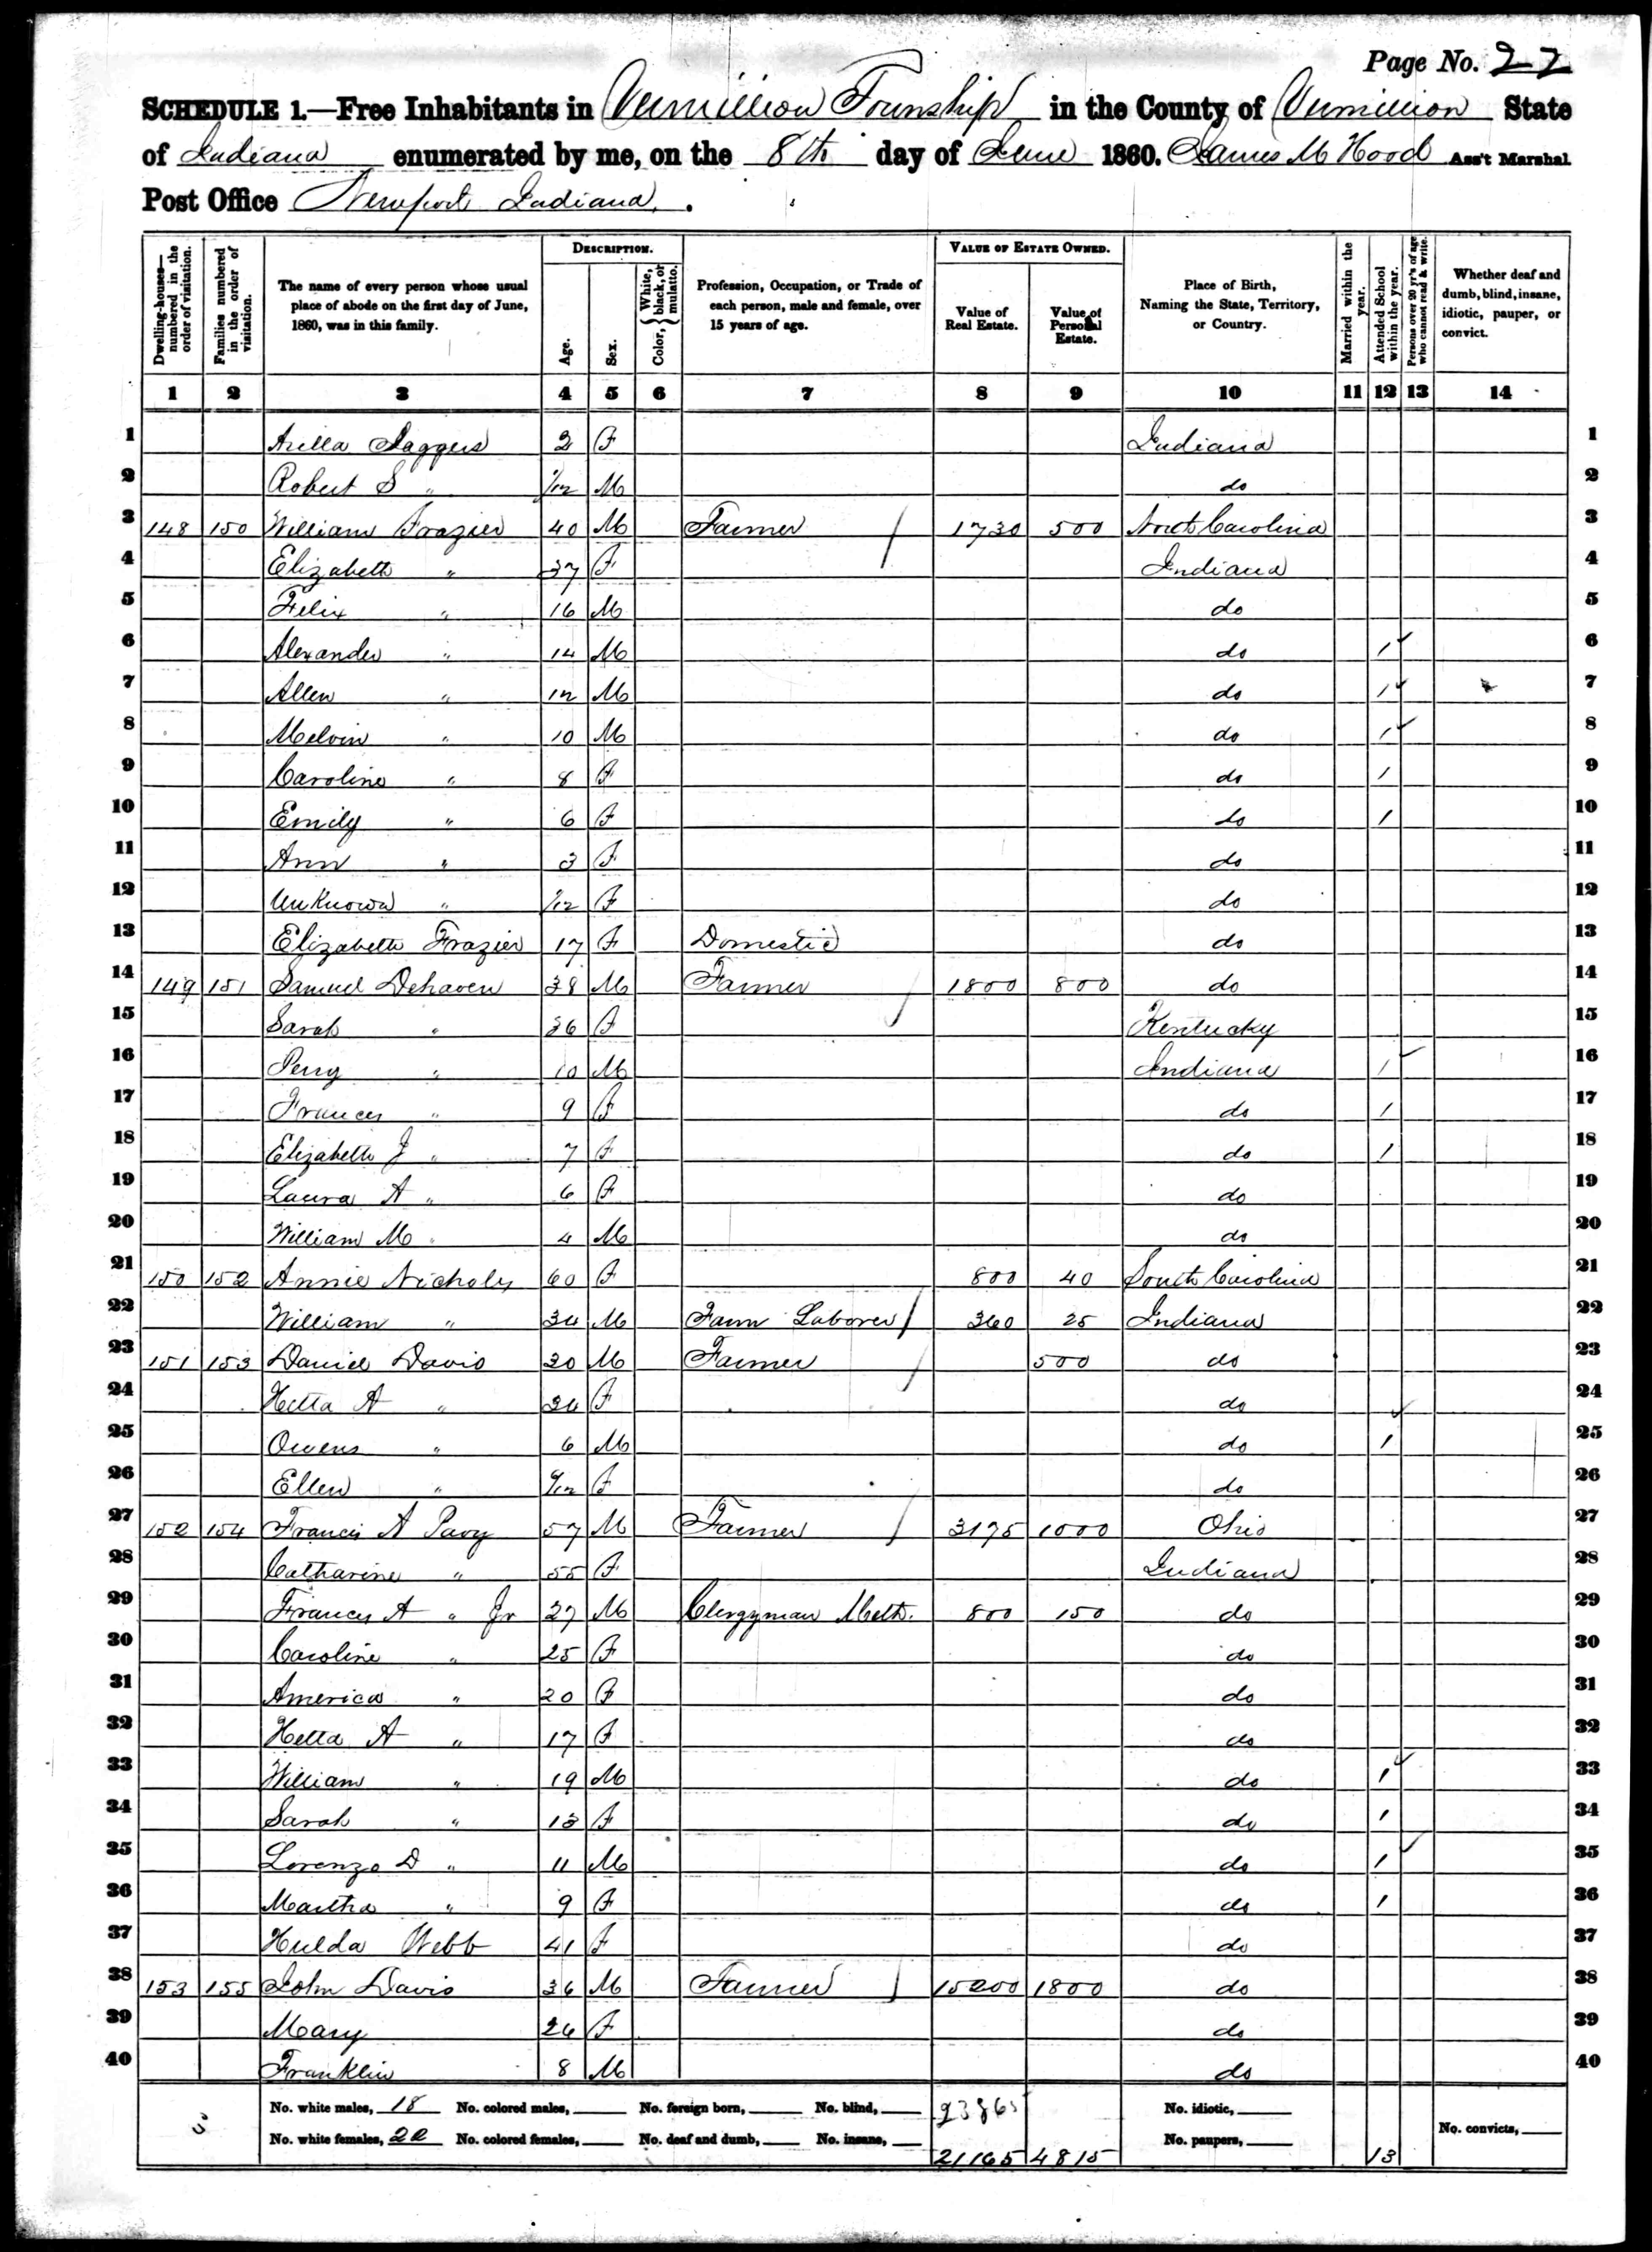 Page No. 22
SCHEDULE 1.—Free Inhabitants in Vermillion Township in the County of Vermillion State
of Indiana enumerated by me, on the 8th day of June 1860. James M Hood Ass't Marshal
Post Office Newport Indiana.
Dwelling-houses—numbered in the order of visitation.
Families numbered in the order of visitation.
The name of every person whose usual place of abode on the first day of June, 1860, was in this family.
DESCRIPTION.
Age.
Sex.
Color, { White, black, or mulatto.
Profession, Occupation, or Trade of each person, male and female, over 15 years of age.
VALUE OF ESTATE OWNED.
Value of Real Estate.
Value of Personal Estate.
Place of Birth, Naming the State, Territory, or Country.
Married within the year.
Attended School within the year.
Persons over 20 yr's of age who cannot read & write.
Whether deaf and dumb, blind, insane, idiotic, pauper, or convict.
1 2 3 4 5 6 7 8 9 10 11 12 13 14
1 Jaggers 2 F Indiana 1
2 Robert S " 1/12 M do 2
3 148 150 William Frazier 40 M Farmer / 1730 500 North Carolina 3
4 Elizabeth " 37 F Indiana 4
5 Felix " 16 M do 5
6 Alexander " 14 M do 1 ✓ 6
7 Allen " 12 M do 1 ✓ 7
8 Melvin " 10 M do 1 ✓ 8
9 Caroline " 8 F do 1 9
10 Emily " 6 F do 1 10
11 Ann " 3 F do 11
12 Unknown " 1/12 F do 12
13 Elizabeth Frazier 17 F Domestic do 13
14 149 151 Samuel Dehaven 38 M Farmer / 1800 800 do 14
15 Sarah " 36 F Kentucky 15
16 Perry " 10 M Indiana 1 ✓ 16
17 Frances " 9 F do 1 17
18 Elizabeth J " 7 F do 1 18
19 Laura A " 6 F do 19
20 William M " 4 M do 20
21 150 152 Annie Nichols 60 F 800 40 South Carolina 21
22 William " 34 M Farm Laborer / 360 25 Indiana 22
23 151 153 Daniel Davis 30 M Farmer / 500 do 23
24 Hetta A " F do 24
25 Owens " 6 M do 1 ✓ 25
26 Ellen " 9/12 F do 26
27 152 154 Francis A Pavy 57 M Farmer / 3175 1000 Ohio 27
28 Catharine " 55 F Indiana 28
29 Francis A " Jr 27 M Clergyman Meth. 800 150 do 29
30 Caroline " 25 F do 30
31 America " 20 F do 31
32 Hetta A " 17 F do 32
33 William " 19 M do 1 ✓ 33
34 Sarah " 13 F do 1 34
35 Lorenzo D " 11 M do 1 ✓ 35
36 Martha " 9 F do 1 36
37 Hulda Webb 41 F do 37
38 153 155 John Davis 36 M Farmer / 15200 1800 do 38
39 Mary 26 F do 39
40 Franklin 8 M do 40
No. white males, 18 No. colored males, No. foreign born, No. blind, 23865 No. idiotic,
No. white females, 22 No. colored females, No. deaf and dumb, No. insane, 21165 4815 No. paupers, 13 No. convicts,